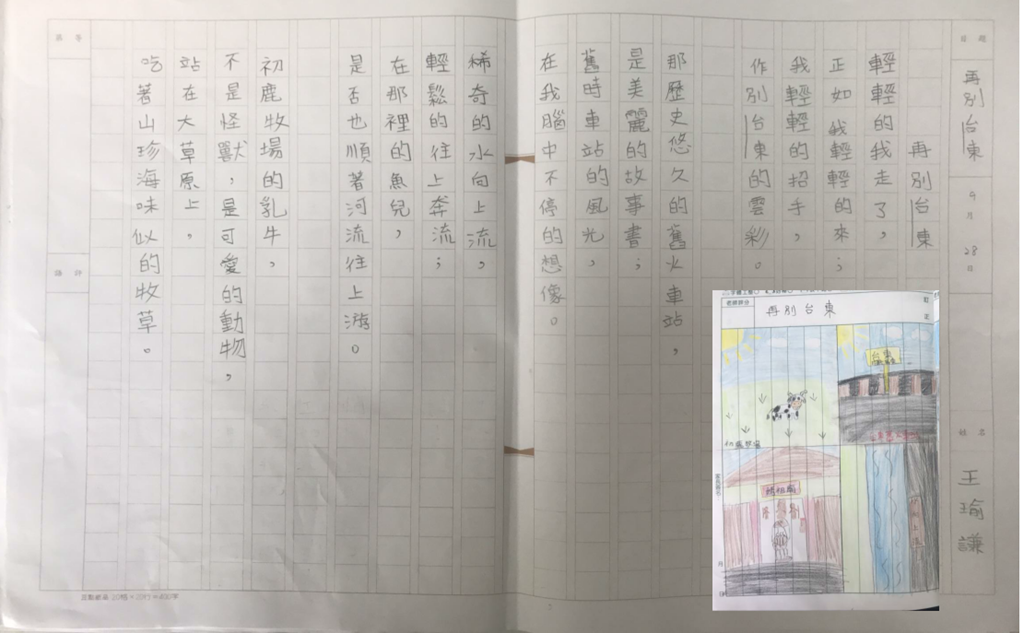 卷題
再別台東
9月28日
姓名
王瑜謙
再別台東
輕輕的我走了,
正如我輕輕的來;
我輕輕的招手,
作別台東的雲彩。
那歷史悠久的舊火車站,
是美麗的故事書;
舊時車站的風光,
在我腦中不停的想像。
稀奇的水向上流,
輕鬆的往上奔流;
在那裡的魚兒,
是否也順著河流往上游。
初鹿牧場的乳牛,
不是怪獸,是可愛的動物,
站在大草原上,
吃著山珍海味似的牧草。
第 頁
講評
直點紙本 20格×20行=400字
老師評分
再別台東
初鹿牧場
台東
媽祖廟